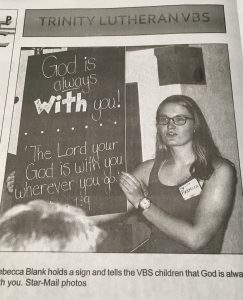 TRINITY LUTHERAN VBS
God is
always
With you!
"The Lord your
God is with you
wherever you go."
1:9
Rebecca
ebecca Blank holds a sign and tells the VBS children that God is alwa
th you. Star-Mail photos